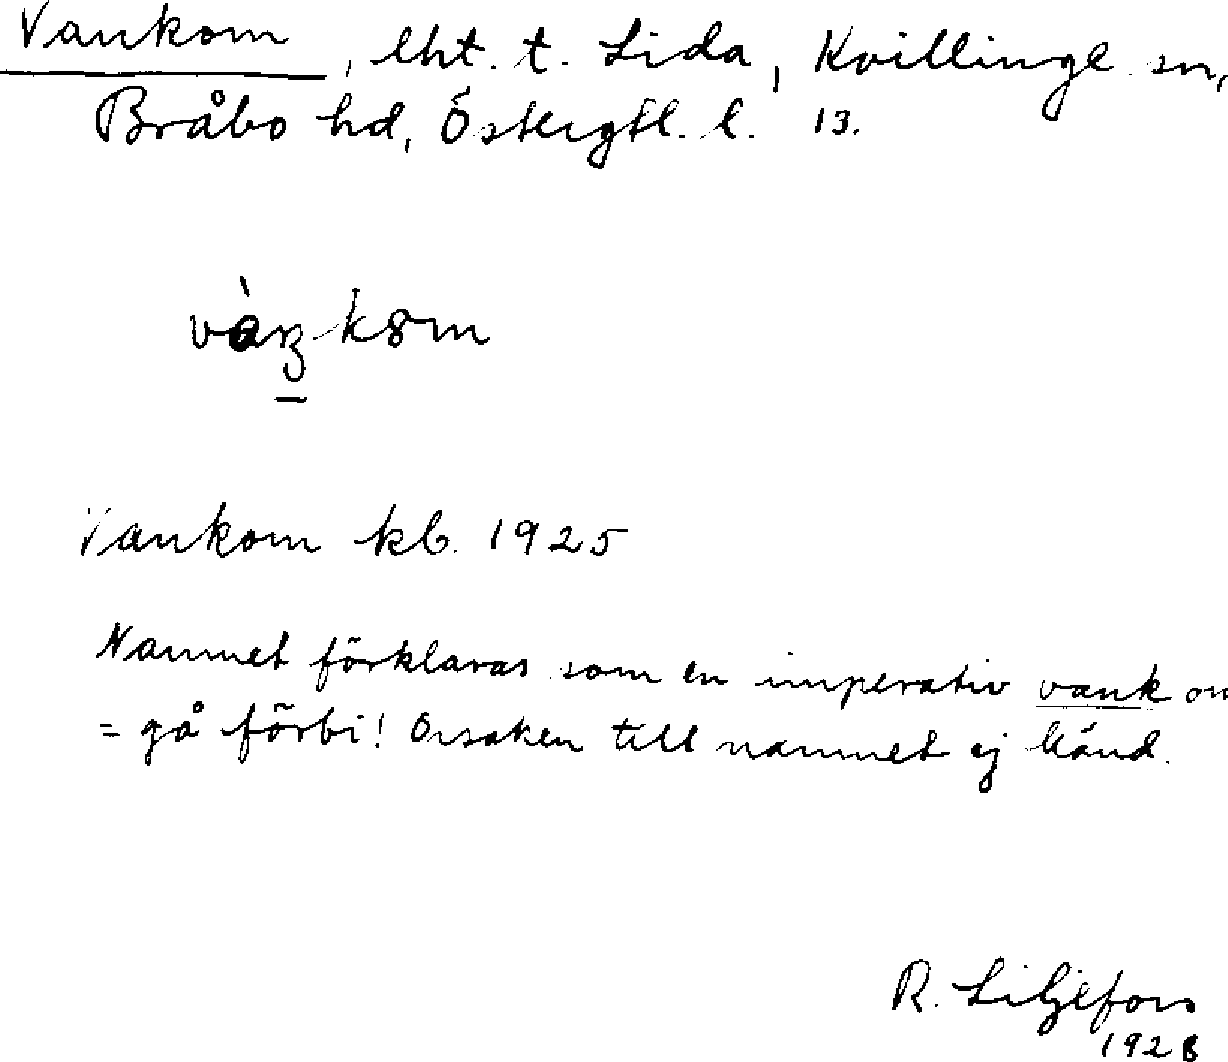 Vankom, lht. t. Lida, Kvillinge sn,
Bråbo hd, Östergtl. l. 13.
vàŋkom
Vankom kb. 1925
Namnet förklaras som en imperativ vank om
= gå förbi! Orsaken till namnet ej känd.
R. Liljefors
1928